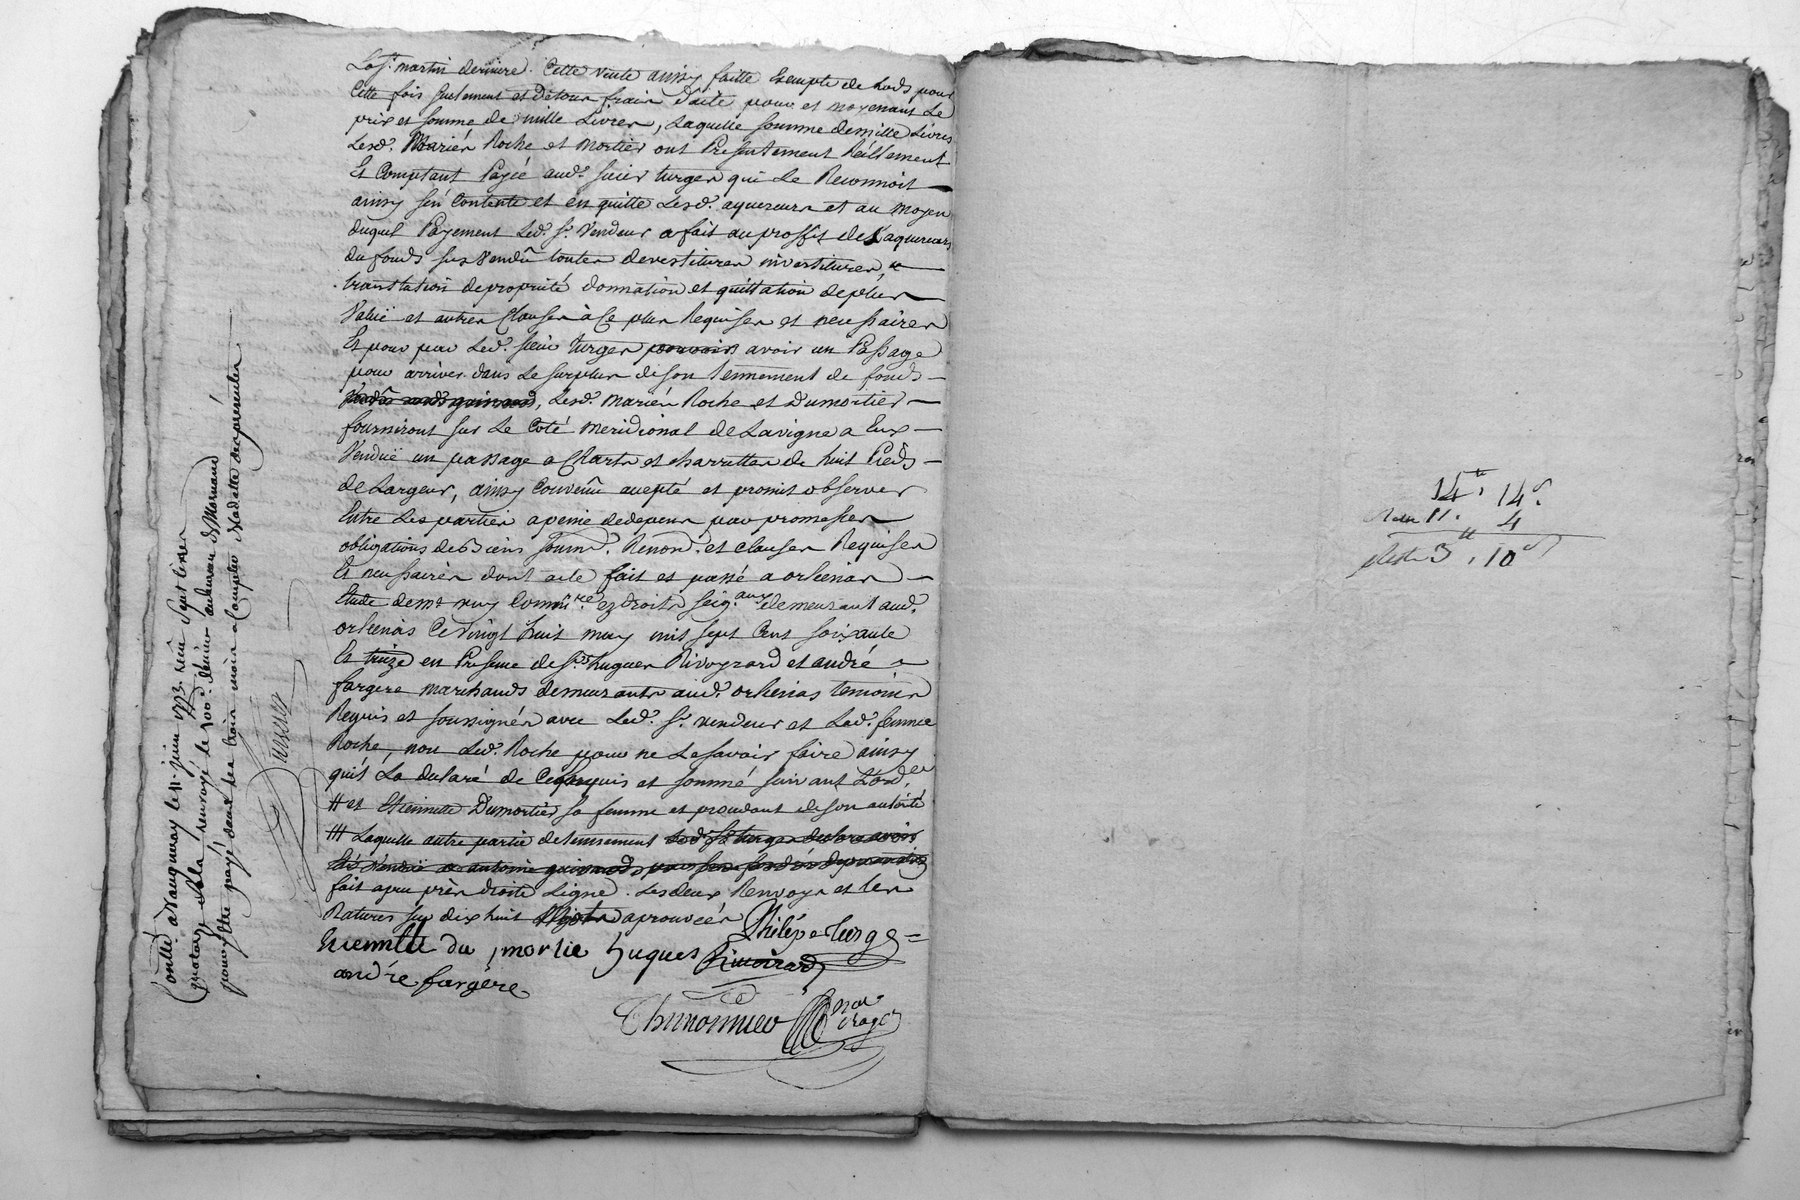 La st. martin derniere. Cette vente ainsy faitte Exempte de Lods pour
Cette fois seulement et de tous frais d'icte pour et moyenant Le
prix et somme de mille Livres, Laquelle somme de mille Livres
Lesd. Mariés Roche et Mortier ont Presentement Réellement
Et Comptant Payée aud. sieur turges qui Le Reconnoit
ainsy s'en Contente et en quitte Lesd. aquereurs et au moyen
duquel Payement Led. Sr. Vendeur a fait au proffit des aquereurs
du fonds sus Vendû toutes devestitures investitures, &
translation de propriété donnation et quittation de plus
Value et autres Clauses à Ce plus Requises et necessaires
Et pour que Led. sieur turges pouvoir avoir un Passage
pour arriver dans Le surplus de son tennement de fonds
Lesd. Mariés Roche et Dumortier
fourniront sur Le Coté meridional de La vigne a Eux
Vendue un passage a Chars et charrettes de huit Pieds
de Largeur, ainsy Convenû accepté et promit observer
Entre Les parties a peine de depens par promesses
obligations de Biens soumn. Renon. et clauses Requises
Et necessaires dont acte fait et passé a orlienas
Etude de me ruy Commre. ez droits seig.aux demeurant aud.
orlienas Ce Vingt huit may mil sept Cent soixante
Et treize en Presence de Srs. hugues Rivoyrard et andré
fargere marchands demeurants aud. orlienas temoins
Requis et soussignés avec Led. Sr. vendeur et Lad. femme
Roche, non Led. Roche pour ne Le savoir faire ainsy
qu'il La declaré de Ce Enquis et sommé suivant L'ord.ce
# et Etiennette Dumortier sa femme et procedant de son autorité
Laquelle autre partie de tennement Led. Sr. turges declare avoir
Eté Vendue a antoine
fait a peu près droite Ligne. Les deux Renvoys et Les
Ratures sur dix huit aprouvées Philipe Turges
Etiennette du mortie hugues Rivoirard
andré fargere
Thimonnier Not.
Contlé. à Vaugneray le 11 juin 1773. reçu sept livres
quatorze sols, renvoyé le 100e. denier au bureau de Mornant
pour y etre payé dans les trois mois a Compter de la datte des presentes
14 tt. 14 s.
11. 4
Reste 3 tt, 10 s